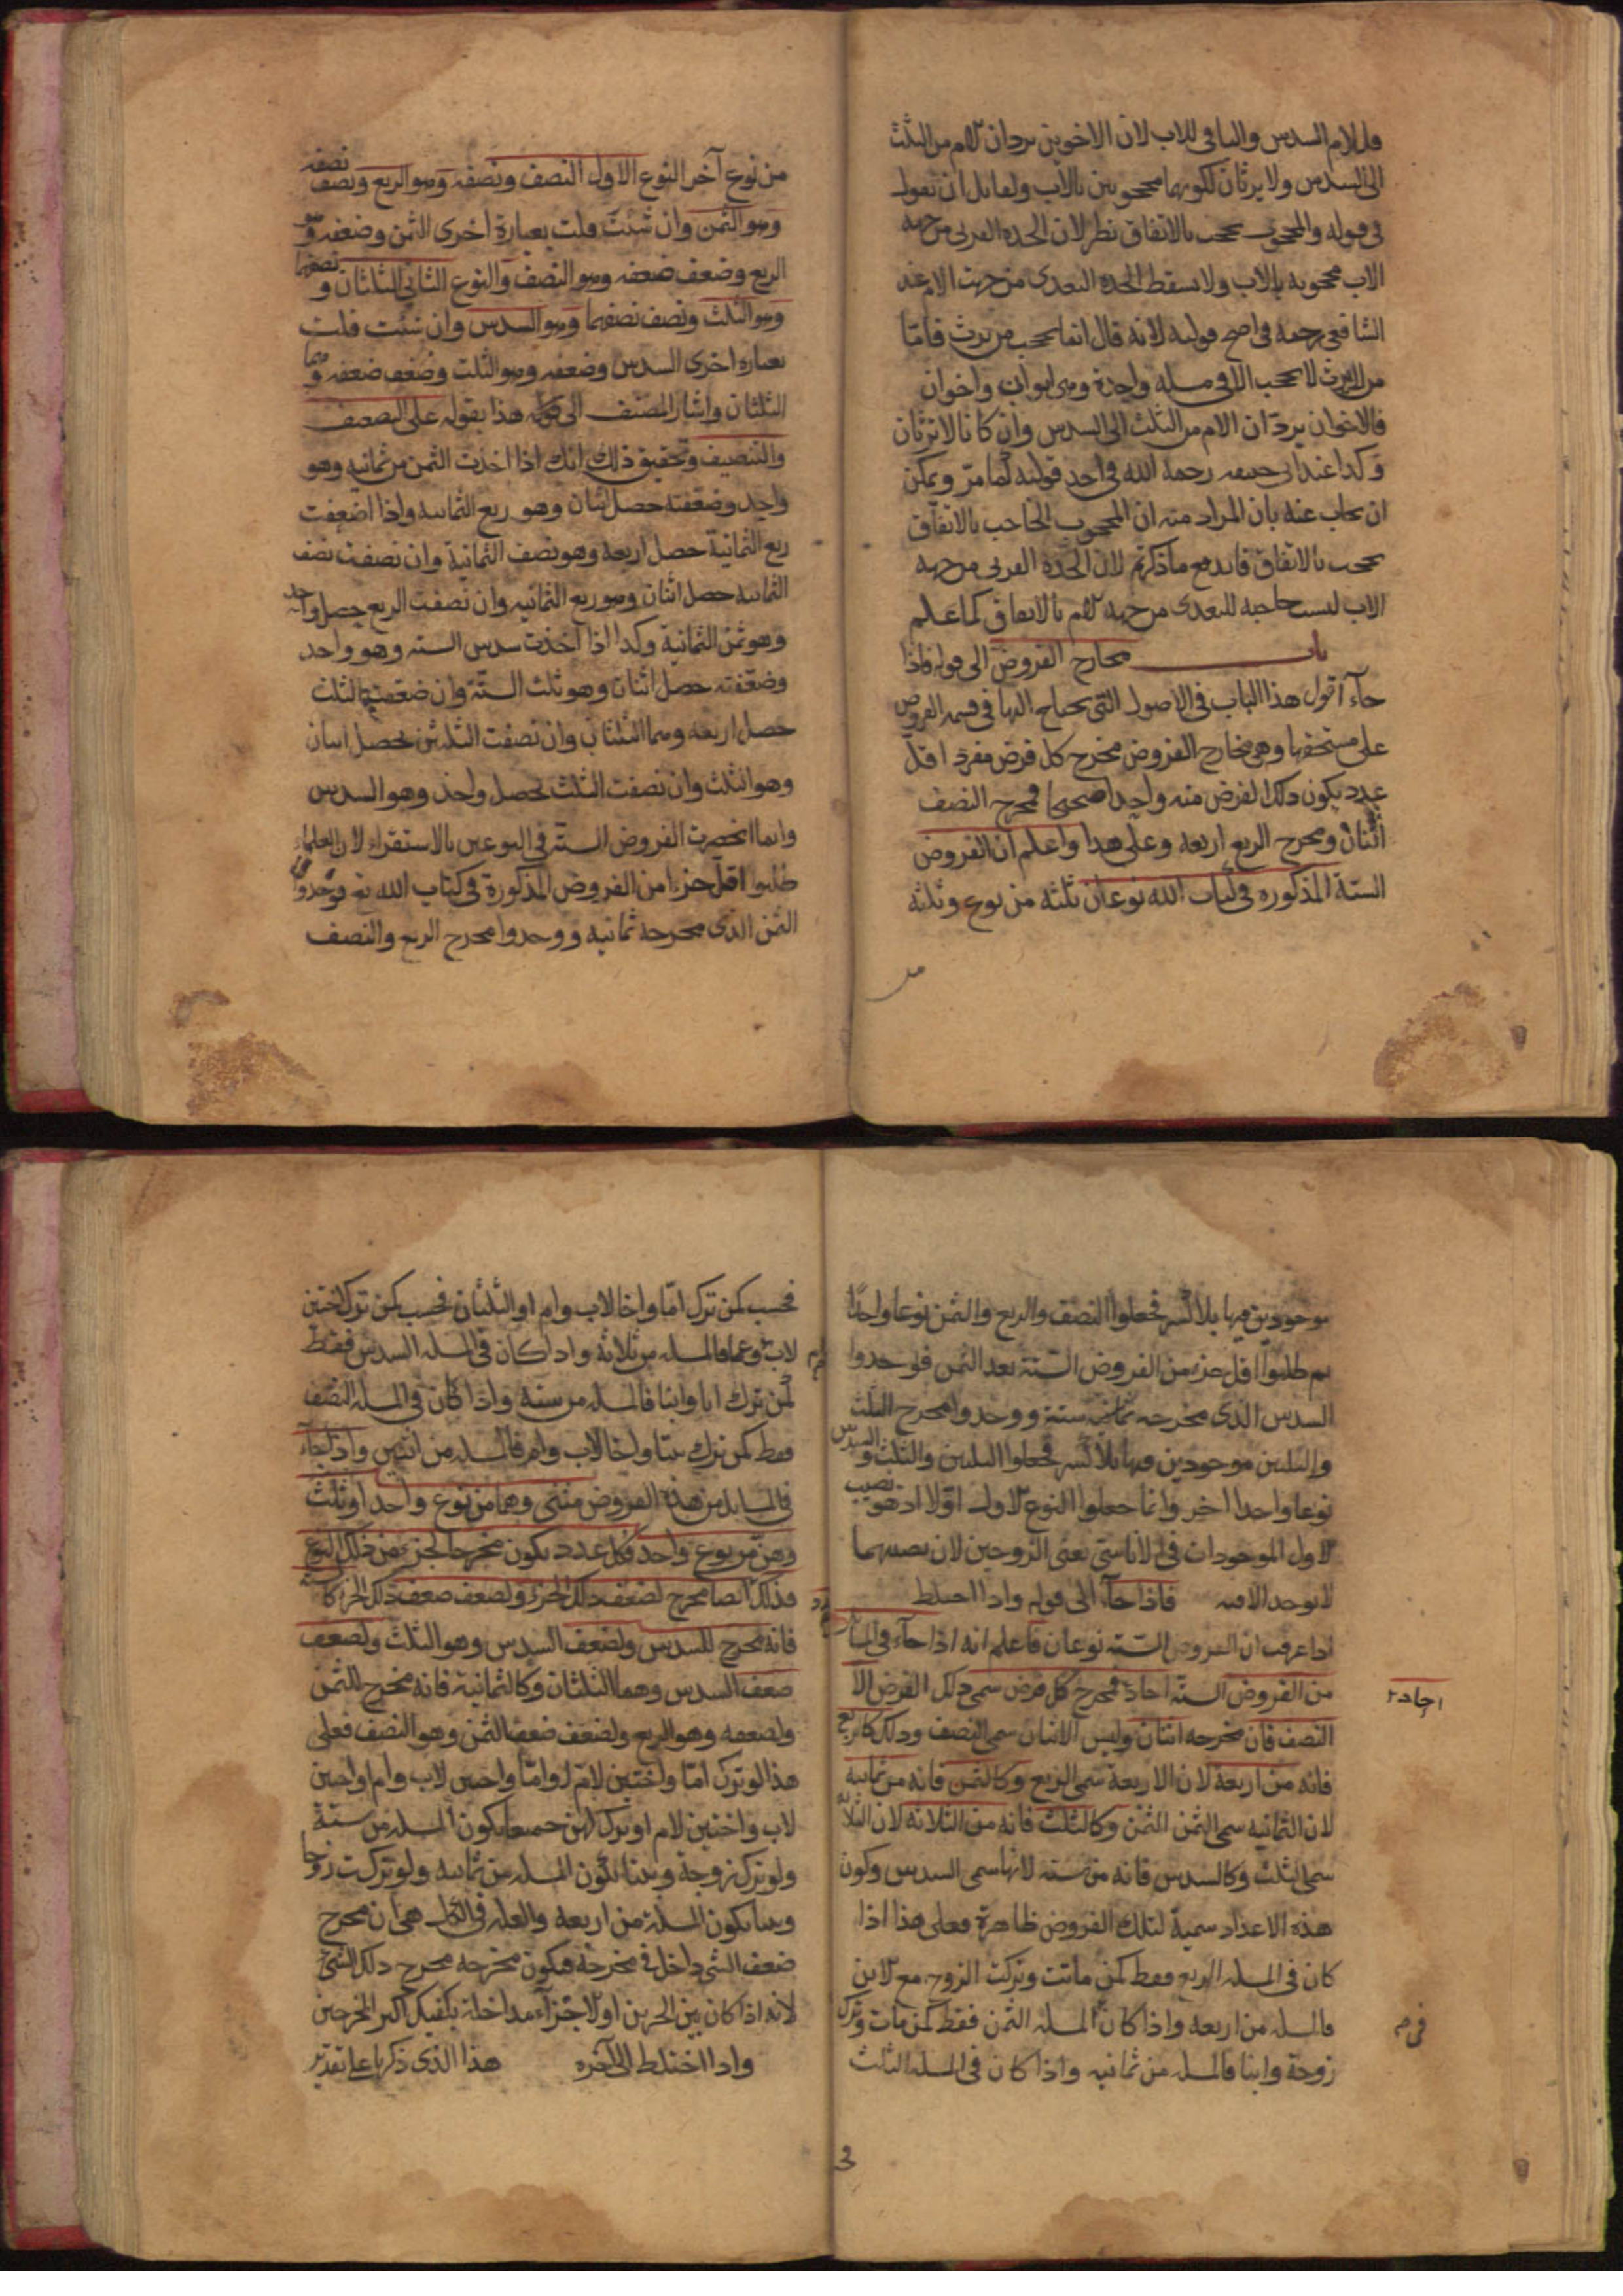 فللام السدس والباقي للاب لان الاخوين يردان الام من الثلث
الى السدس ولا يرثان لكونهما محجوبين بالاب ولقايل ان يقول
في قوله والمحجوب يحجب بالاتفاق نظر لان الجدة القربى من جهة
الاب محجوبة بالاب ولا تسقط الجدة البعدى من جهة الام عند
الشافعي رحمه في اصح قوليه لانه قال انما يحجب من يرث فاما
من لا يرث لا يحجب الا في مسلة واحدة وهي ابوان واخوان
فالاخوان يردان الام من الثلث الى السدس وان كانا لا يرثان
وكذا عند ابي حنيفه رحمه الله في احد قوليه كما مر ويمكن
ان يجاب عنه بان المراد منه ان المحجوب الحاجب بالاتفاق
يحجب بالاتفاق فاندفع ما ذكرتم لان الجدة القربى من جهة
الاب ليست حاجبة للبعدى من جهة الام بالاتفاق كما علم
باب مخارج الفروض الى قوله فاذا
جآء اقول هذا الباب في الاصول التي يحتاج اليها في قسمة الفروض
على مستحقها وهي مخارج الفروض مخرج كل فرض مفرد اقل
عدد يكون ذلك الفرض منه واحدا صحيحا فمخرج النصف
اثنان ومخرج الربع اربعة وعلى هذا واعلم ان الفروض
الستة المذكورة في كتاب الله نوعان ثلثة من نوع وثلثة
من نوع آخر النوع الاول النصف ونصفه وهو الربع ونصف نصفه
وهو الثمن وان شئت قلت بعبارة اخرى الثمن وضعفه وهو
الربع وضعف ضعفه وهو النصف والنوع الثاني الثلثان ونصفهما
وهو الثلث ونصف نصفهما وهو السدس وان شئت قلت
بعبارة اخرى السدس وضعفه وهو الثلث وضعف ضعفه وهما
الثلثان واشار المصنف الى هذا بقوله على التضعيف
والتنصيف وتحقيق ذلك انك اذا اخذت الثمن من ثمانية وهو
واحد وضعفته حصل اثنان وهو ربع الثمانية واذا اضعفت
ربع الثمانية حصل اربعة وهو نصف الثمانية وان نصفت نصف
الثمانية حصل اثنان وهو ربع الثمانية وان نصفت الربع حصل واحد
وهو ثمن الثمانية وكذا اذا اخذت سدس الستة وهو واحد
وضعفته حصل اثنان وهو ثلث الستة وان ضعفت الثلث
حصل اربعة وهما الثلثان وان نصفت الثلثين يحصل اثنان
وهو الثلث وان نصفت الثلث يحصل واحد وهو السدس
وانما انحصرت الفروض الستة في النوعين بالاستقراء لان العلماء
طلبوا اقل جزء من الفروض المذكورة في كتاب الله فوجدوا
الثمن الذي مخرجه ثمانية ووجدوا مخرج الربع والنصف
موجودين فيها بلا كسر فجعلوا النصف والربع والثمن نوعا واحدا
ثم طلبوا اقل جزء من الفروض الستة بعد الثمن فوجدوا
السدس الذي مخرجه ستة ووجدوا مخرج الثلث
والثلثين موجودين فيها بلا كسر فجعلوا الثلثين والثلث والسدس
نوعا واحدا اخر وانما جعلوا النوع الاول اولا اذ هو نصيب
لاول الموجودات في الاناسي يعني الزوجين لان نصيبهما
لا يوجد الا فيه فاذا جآء الى قوله واذا اختلط
اذا عرفت ان الفروض الستة نوعان فاعلم انه اذا جاء في المسايل
من الفروض الستة احاد فمخرج كل فرض سمي ذلك الفرض الا
احاد
النصف فان مخرجه اثنان وليس الاثنان سمي النصف وذلك كالربع
فانه من اربعة لان الاربعة سمي الربع وكالثمن فانه من ثمانية
لان الثمانية سمي الثمن وكالثلث فانه من الثلاثة لان الثلاثة
سمي الثلث وكالسدس فانه من ستة لانها سمي السدس وكون
هذه الاعداد سمية لتلك الفروض ظاهرة فعلى هذا اذا
كان في المسلة الربع فقط كمن ماتت وتركت الزوج مع الابن
فالمسلة من اربعة واذا كان المسلة الثمن فقط كمن مات وترك
زوجة وابنا فالمسلة من ثمانية واذا كان في المسلة الثلث
فحسب كمن ترك اما واخا لاب وام او الثلثان فحسب كمن ترك اختين
لاب وعما فالمسلة من ثلاثة واذا كان في المسلة السدس فقط
كمن ترك ابا وابنا فالمسلة من ستة واذا كان في المسلة النصف
فقط كمن ترك بنتا واخا لاب وام فالمسلة من اثنين واذا جآء
في المسايل من هذه الفروض مثنى وهما من نوع واحد او ثلث
وهن من نوع واحد فكل عدد يكون مخرجا لجزء من ذلك النوع
فذلك ايضا مخرج لضعف ذلك الجزء ولضعف ضعف ذلك الجزء كالستة
فانه مخرج للسدس ولضعف السدس وهو الثلث ولضعف
ضعف السدس وهما الثلثان وكالثمانية فانه مخرج للثمن
ولضعفه وهو الربع ولضعف ضعف الثمن وهو النصف فعلى
هذا لو ترك اما واختين لام او اما واختين لاب وام او اختين
لاب واختين لام او ترك لهن جميعا يكون المسلة من ستة
ولو ترك زوجة وبنتا تكون المسلة من ثمانية ولو تركت زوجا
وبنتا يكون المسلة من اربعة والعلة في الكل هي ان مخرج
ضعف الشي داخل في مخرجه فيكون مخرجه مخرج ذلك الشي
لانه اذا كان بين الجزءين او الاجزآء مداخلة يكفيك اكبر المخرجين
واذا اختلط الى آخره هذا الذي ذكرنا على تقدير